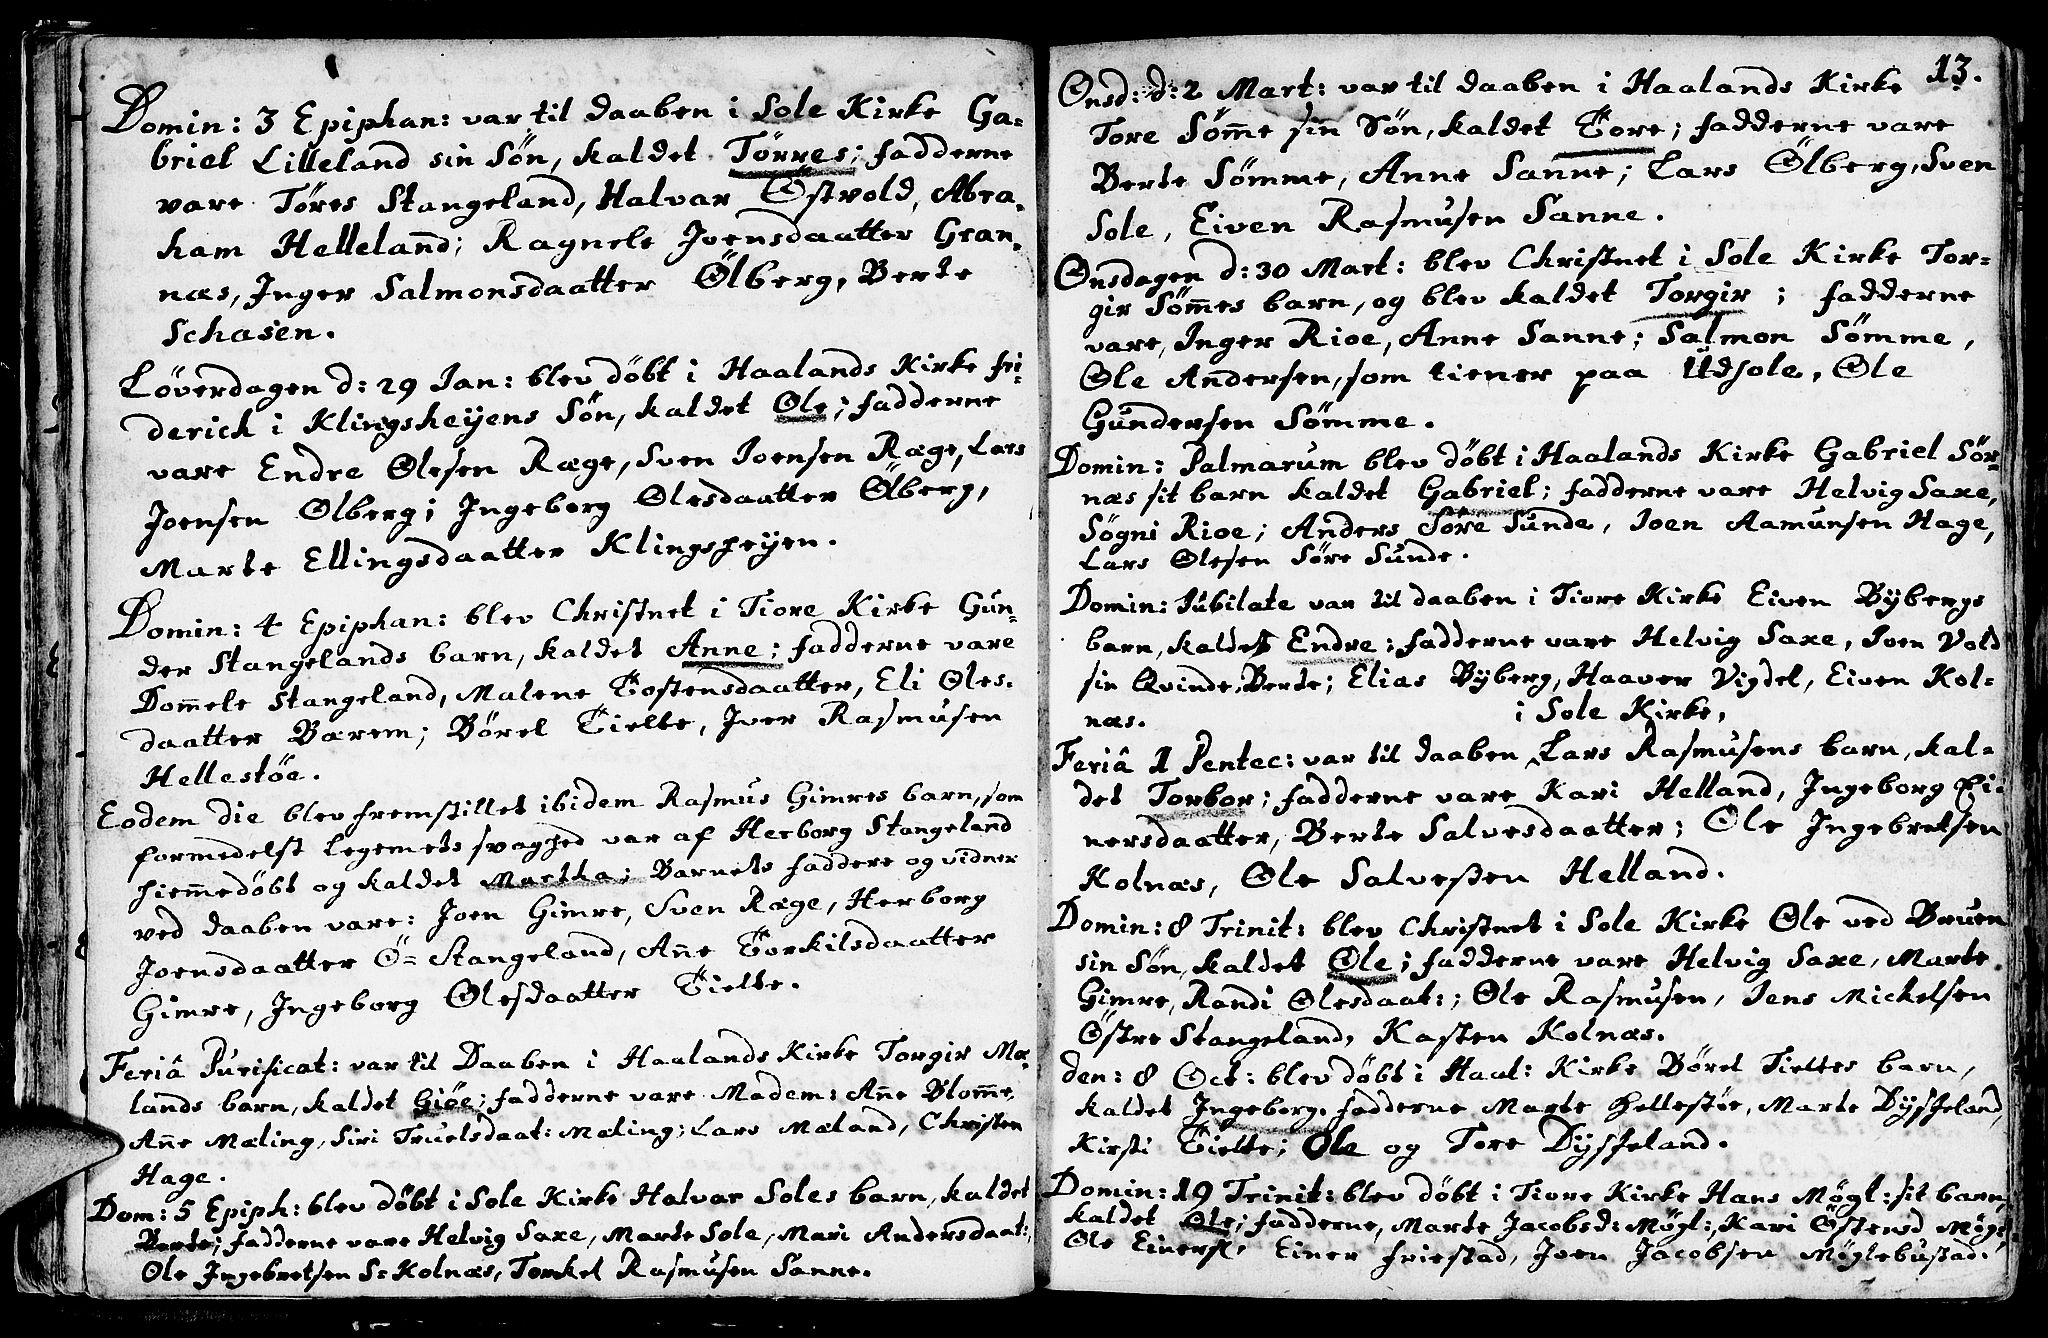 Domin: 3 Epiphan: var til daaben i Sole Kirke Ga=
briel Lilleland sin Sön, kaldet Törres; fadderne
vare Töres Stangeland, Halvar Östvold, Abra=
ham Helleland; Ragnele Joensdaatter Gran=
næs, Inger Salmonsdaatter Ölberg, Berte
Schasen.
Löverdagen d: 29 Jan: blev döbt i Haalands Kirke fri=
derich i Klingsheÿens Sön, kaldet Ole; fadderne
vare Endre Olesen Ræge, Sven Joensen Ræge, Lars
Joensen Olberg; Ingeborg Olesdaatter Ölberg,
Marte Ellingsdaatter Klingsheÿen.
Domin: 4 Epiphan: blev Christnet i Tiore Kirke Gun=
der Stangelands barn, kaldet Anne; fadderne vare
Dom̄ele Stangeland, Malene Tostensdaatter, Eli Oles=
daatter Bærem; Börel Tielte, Iver Rasmusen
Hellestöe.
Eodem die blev fremstillet ibidem Rasmus Gimres barn, som
formedelst legemets svaghed var af Herborg Stangeland
hiem̄edöbt og kaldet Martha; Barnets faddere og vidner
ved daaben vare: Joen Gimre, Sven Ræge, Herborg
Joensdaatter Ö= Stangeland, An̄e Torkilsdaatter
Gimre, Ingeborg Olesdaatter Tielte.
Feriâ Purificat: var til Daaben i Haalands Kirke Torgir Mæ=
lands barn, kaldet Giöe; fadderne vare Madem: An̄e Blom̄e,
An̄e Mæling, Siri Truelsdaat: Mæling; Lars Mæland, Christen
Hage.
Dom: 5 Epiph: blev döbt i Sole Kirke Halvar Soles barn, kaldet
Berte; fadderne vare Helvig Saxe, Marte Sole, Mari Andersdaat:,
Ole Ingebretsen S= Kolnæs, Torkel Rasmusen Sanne.
13.
Onsd: d: 2 Mart: var til daaben i Haalands Kirke
Tore Söm̄e sin Sön, kaldet Tore; fadderne vare
Berte Sömme, Anne Sanne; Lars Ölberg, Sven
Sole, Eiven Rasmusen Sanne.
Onsdagen d: 30 Mart: blev Christnet i Sole Kirke Tor=
gir Söm̄es barn, og blev kaldet Torgir; fadderne
vare, Inger Rioe, Anne Sanne; Salmon Sömme,
Ole Andersen, som tiener paa Udsole, Ole
Gundersen Sömme.
Domin: Palmarum blev döbt i Haalands Kirke Gabriel Sör=
næs sit barn kaldet Gabriel; fadderne vare Helvig Saxe,
Sögni Rioe; Anders Söre Sunde, Joen Aamunsen Hage,
Lars Olesen Söre Sunde.
Domin: Jubilate var til daaben i Tiore Kirke Eiven Bÿbergs
barn, kaldet Endre; fadderne vare Helvig Saxe, Joen Vold
sin Qvinde, Berte; Elias Bÿberg, Haaver Vigdel, Eiven Kol=
næs.
i Sole Kirke,
Feriâ 1 Pentec: var til daaben Lars Rasmusens barn, kal=
det Torbor; fadderne vare Kari Helland, Ingeborg Ei=
nersdaatter, Berte Salvesdaatter; Ole Ingebretsen
Kolnæs, Ole Salvesen Helland.
Domin: 8 Trinit: blev Christnet i Sole Kirke Ole ved Bruen
sin Sön, kaldet Ole; fadderne vare Helvig Saxe, Marte
Gimre, Randi Olesdaat:; Ole Rasmusen, Jens Mickelsen
Östre Stangeland, Kasten Kolnæs.
den: 8 Oct: blev döbt i Haal: Kirke Börel Tieltes barn,
kaldet Ingeborg. fadderne Marte Hellestöe, Marte Dÿsseland,
Kirsti Tielte; Ole og Tore Dÿsseland.
Domin: 19 Trinit: blev döbt i Tiore Kirke Hans Mögl: sit barn,
kaldet Ole; fadderne, Marte Jacobsd: Mögl:, Kari Östensd Mögl
Ole Einers:, Einer Friestad, Joen Jacobsen Möglebustad.